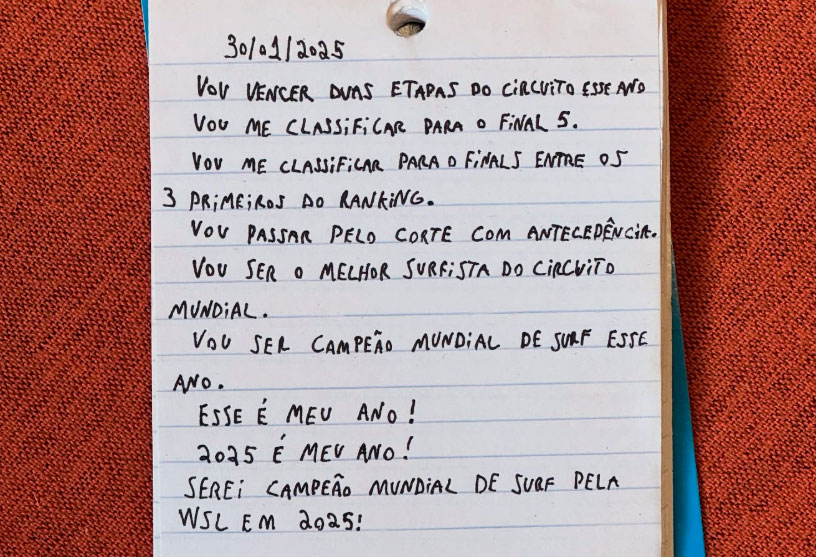 30/01/2025
VOU VENCER DUAS ETAPAS DO CIRCUITO ESSE ANO
VOU ME CLASSIFICAR PARA O FINAL 5.
VOU ME CLASSIFICAR PARA O FINALS ENTRE OS
3 PRIMEIROS DO RANKING.
VOU PASSAR PELO CORTE COM ANTECEDÊNCIA.
VOU SER O MELHOR SURFISTA DO CIRCUITO
MUNDIAL.
VOU SER CAMPEÃO MUNDIAL DE SURF ESSE
ANO.
ESSE É MEU ANO!
2025 É MEU ANO!
SEREI CAMPEÃO MUNDIAL DE SURF PELA
WSL EM 2025!